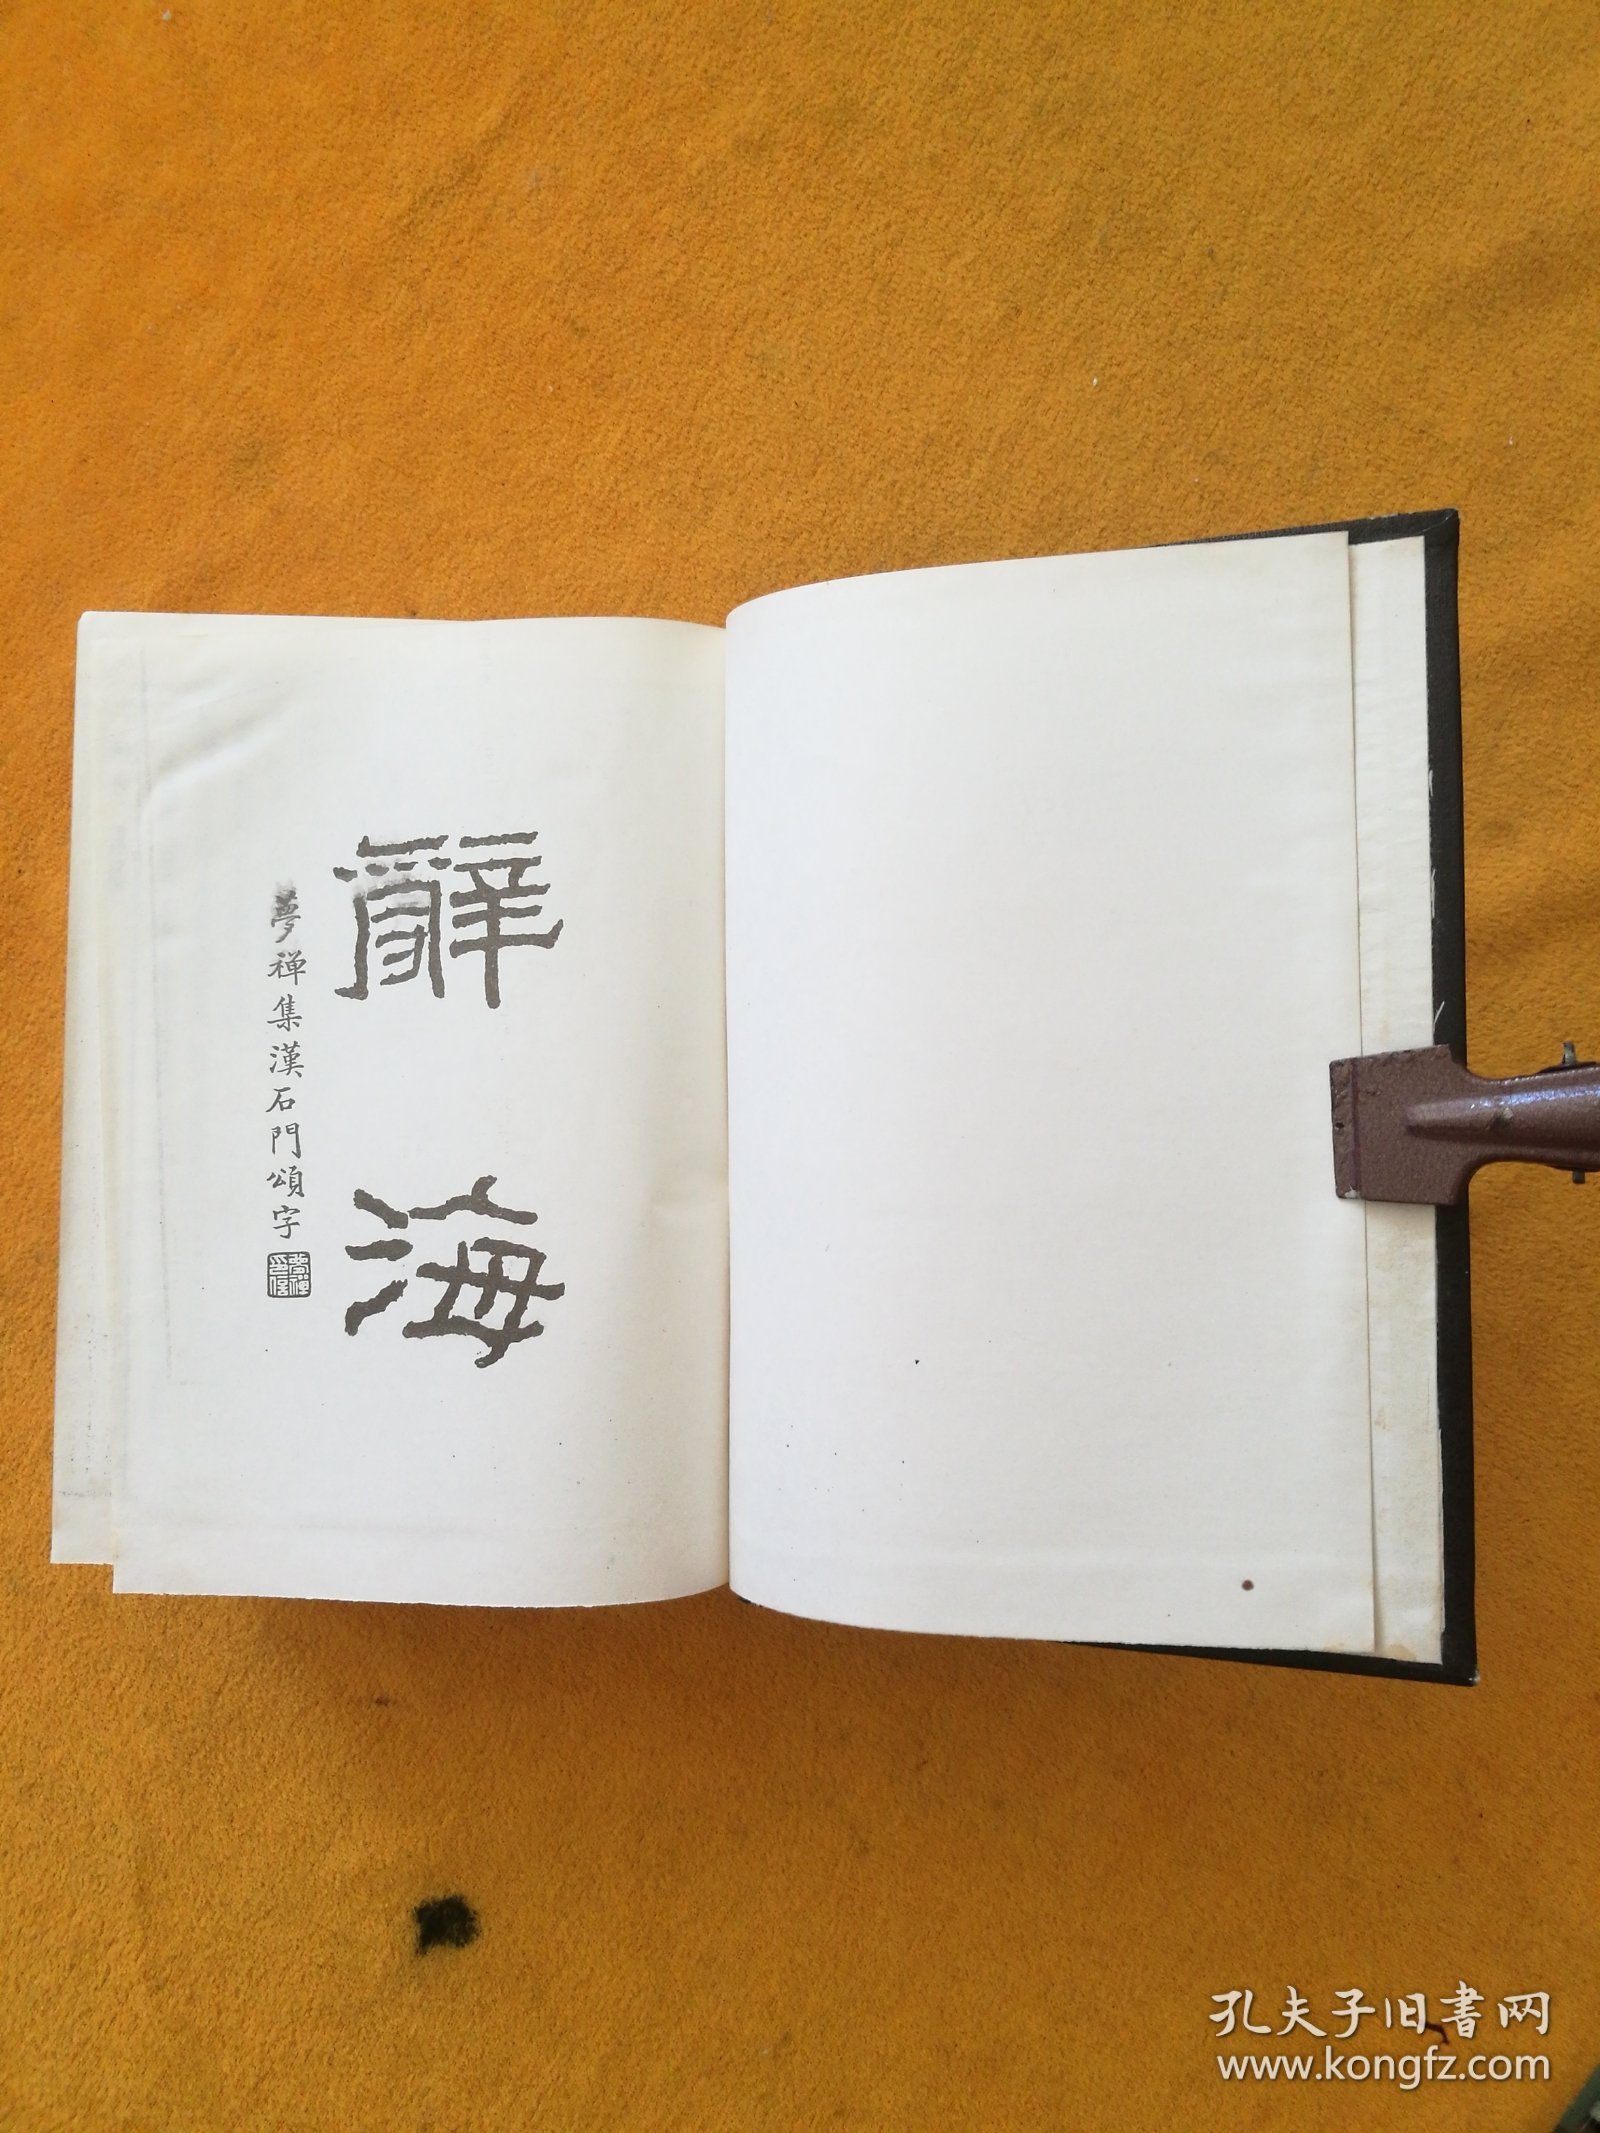 辭海
夢禅集漢石門頌字
夢禅印信
孔夫子旧書网
www.kongfz.com